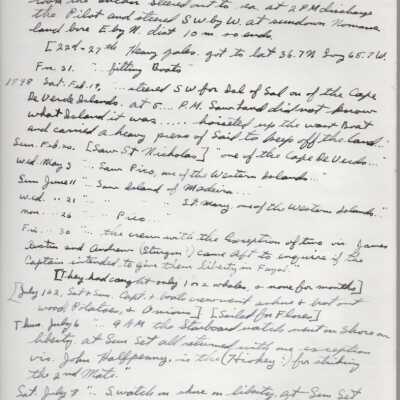 took the ocean steered out to sea. at 2 P.M. discharge
the Pilot and steered S W by W. at sundown Nomans
land bore E by N. dist 10 m so ends
[22d - 27th Heavy gales. got to lat 36.7 N Long 65.7 W.
Fri 31. " fitting Boats
Sat. Feb. 19, "... steered S W for Isl of Sal on of the Cape
De Verde Islands. at 5... P.M. Saw land did not know
what Island it was..... hoisted up the waist Boat
and carried a heavy press of Sail to keep off the land.."
Sun. Feb. 20. [Saw St Nicholas] "one of the Cape De Verds..."
Wed. May 3 ... Saw Pico, one of the Western Islands..."
Sun June 11 "... Saw Island of Madeira...
Wed. " 21 " " " " St. Mary, one of the Western Islands.."
Mon... 26 Pico...
Fri... 30 "... the crew with the Exception of two vis. James
Austin and Andrew (Sturgon) came Aft to enquire if the
Captain intended to Give them liberty in Fayal."
[They had caught only 1 or 2 whales, & none for months]
[July 1 & 2, Sat & Sun. Capt. & boats crew went ashore & bro't out
wood, Potatoes, & Onions] [Sailed for Flores]
Thus, July 6 "... 9 AM the Starboard watch went on Shore on
liberty, at Sun Set all returned with one exception
vis. John Halfpenny, in the (Hickey?) for striking
the 2nd Mate."
Sat. July 8 "... S watch on shore on liberty, at Sun Set